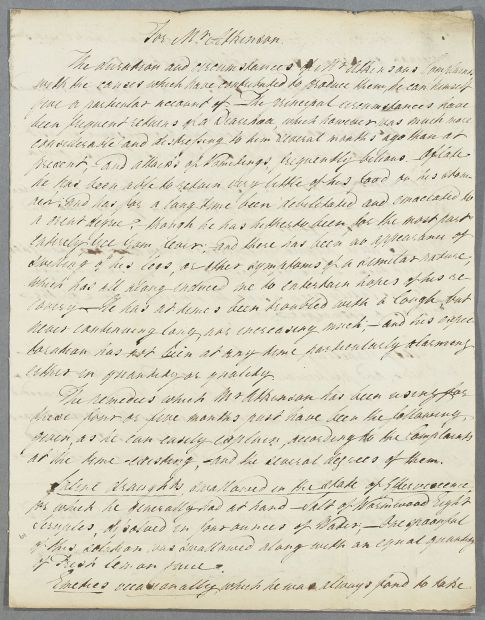 For Mr. Atkinson.
The duration and circumstances of Mr Atkinsons Complaints
with the causes which have contributed to produce them, he can himself
give a particular account of - The principal circumstances have
been frequent returns of a Diarrhœa, which however was much more
considerable and distressing to him several months ago than at
present - and attacks of Vomitings, frequently bilious. Of late
he has been able to retain very little of his food on his stom
and has for a long time been debilitated and emaciated to
a great degree; though he has hitherto been, for the most part
entirely free from fever; and there has been no appearance of
swelling of his legs, or other symptoms of a similar nature,
which has all along induced me to entertain hopes of his re
covery - He has at times been troubled with a Cough, but
never continuing long, nor increasing much - and his expec
toration has not been at any time particularly alarming
either in quantity or quality
The remedies which Mr Atkinson has been using for
these four or five months past have been the following,
given, as he can easily explain, according to the Complaints
at the time existing, and the several degrees of them.
Saline Draughts, swallowed in the state of Effervescence,
for which he generally had at hand - Salt of Wormwood Eight
Scruples, dissolved in four ounces of Water, -
of this solution was swallowed along with an equal quantity
of fresh lemon juice.
Emetics occasionally, which he was always fond to take